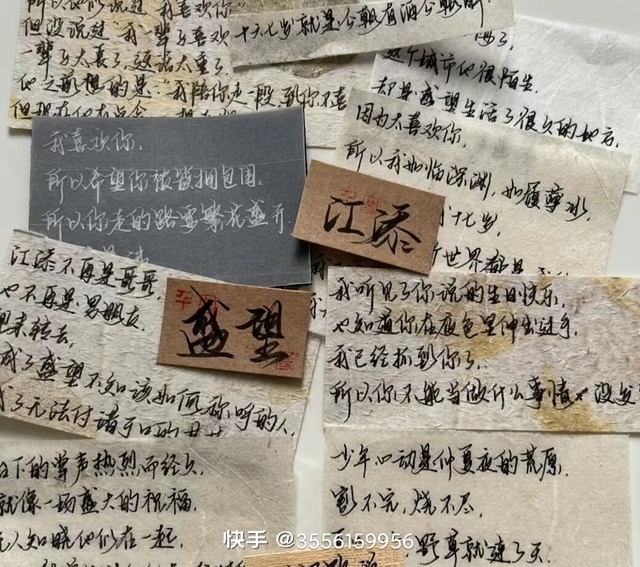 但没说过 我一辈子喜欢
一辈子太长了，这话太重了
他之前想的是：我陪你走一段，到你不喜
十六七岁就是
这个城市他很陌生
却是盛望生活了很久的地方
我喜欢你，
所以希望你被簇拥包围，
所以你走的路要繁花盛开
因为太喜欢你，
所以我如临深渊，如履薄冰
十七岁，
世界都是
江添
盛望
江添不再是哥哥
也不再是男朋友，
转去，
成了盛望不知该如何称呼的人
成了无法付诸于口的
我听见了你说的生日快乐，
也知道你在夜色里伸出过手
我已经抓到你了，
所以你不能当做什么事情也没
台下的掌声热烈而经久
就像一场盛大的祝福
无人知晓他们在一起，
少年心动是仲夏夜的荒原，
割不完，烧不尽
野草就连了天
快手 @3556159956